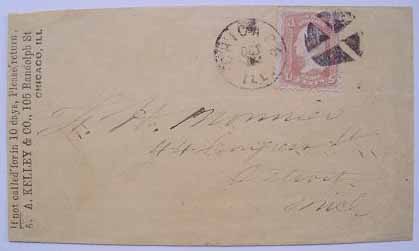 If not called for in 10 days, Please return
A. KELLEY & CO., 105 Randolph St
CHICAGO, ILL.
CHICAGO
OCT
ILL
44 Congress St
Detroit
Mich